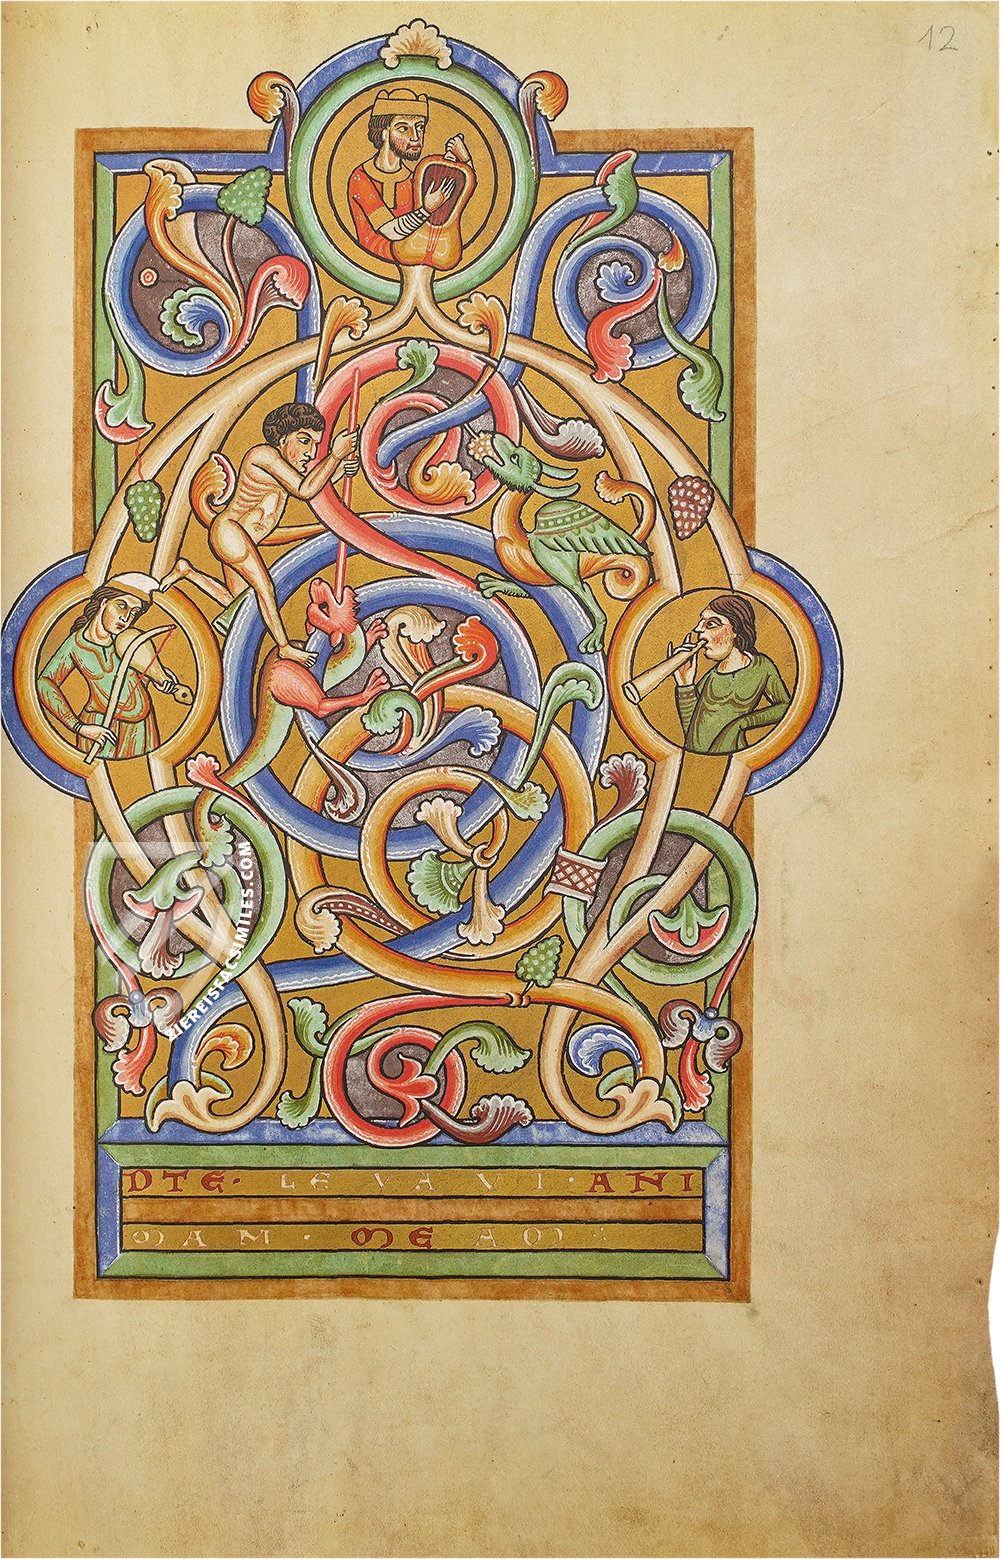 12
DTE· LEVAVI· ANI
MAM · MEAM :
HEREISFACSIMILES.COM